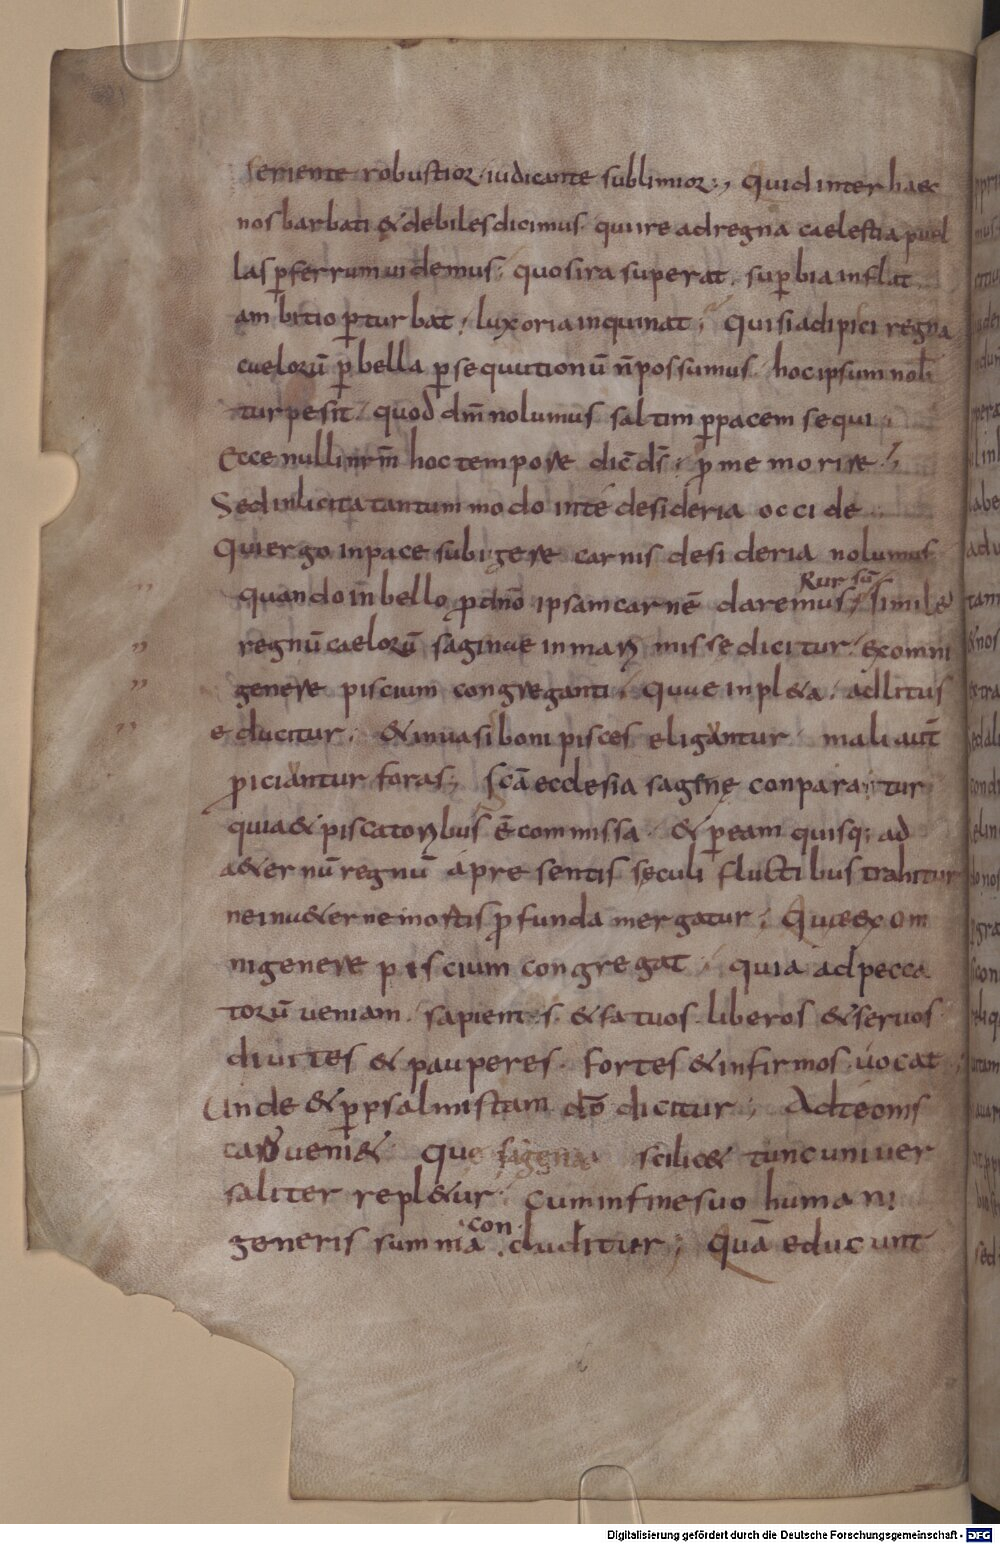 seriente robustior, iudicante sublimior:, Quid inter haec
nos barbati & debiles dicimus. qui ire ad regna caelestia puel
las ꝑ ferrum uidemus; quos ira superat, suꝑbia inflat
ambitio ꝑturbat; luxoria inquinat; Qui si adipici regna
caelorū ꝑ bella ꝑsequutionū n̄ possumus, hoc ipsum nob
turpe sit, quod dm̄ nolumus saltim ꝑ pacem sequi;
Ecce nulli nrm̄ hoc tempore dic̄ ds̄; ꝓ me morire;
Sed inlicita tantum modo in te desideria occide
Qui ergo in pace subigere carnis desideria nolumus
Rursū
quando in bello ꝓ dn̄o ipsam carnē daremus; Simile
regnū caelorū saginae in marę missę dicitur, ex omni
genere piscium congreganti; Quae inpl&a, ad litus
educitur, & in uasi boni pisces eligantur mali aut̄
ꝓiciantur foras; Scā ecclesia saginę conparatur
quia & piscatoribus ē commissa, & ꝑ eam quisq; ad
a&ernū regnū a presentis seculi fluctibus trahitur
ne inu& erne mortis ꝓfunda mergatur; Quae ex om
ni genere piscium congregat; quia ad pecca
torū ueniam sapientes & fatuos liberos & seruos
diuites & pauperes. fortes & infirmos uocat;
Unde & ꝑ psalmistam dō dicitur; Ad te omis
caro ueni& que sagena scilic& tunc uniuer
saliter repl&ur; Cum in fine suo humani
con
generis summa cluditur; Quā educunt
Digitalisierung gefördert durch die Deutsche Forschungsgemeinschaft - DFG